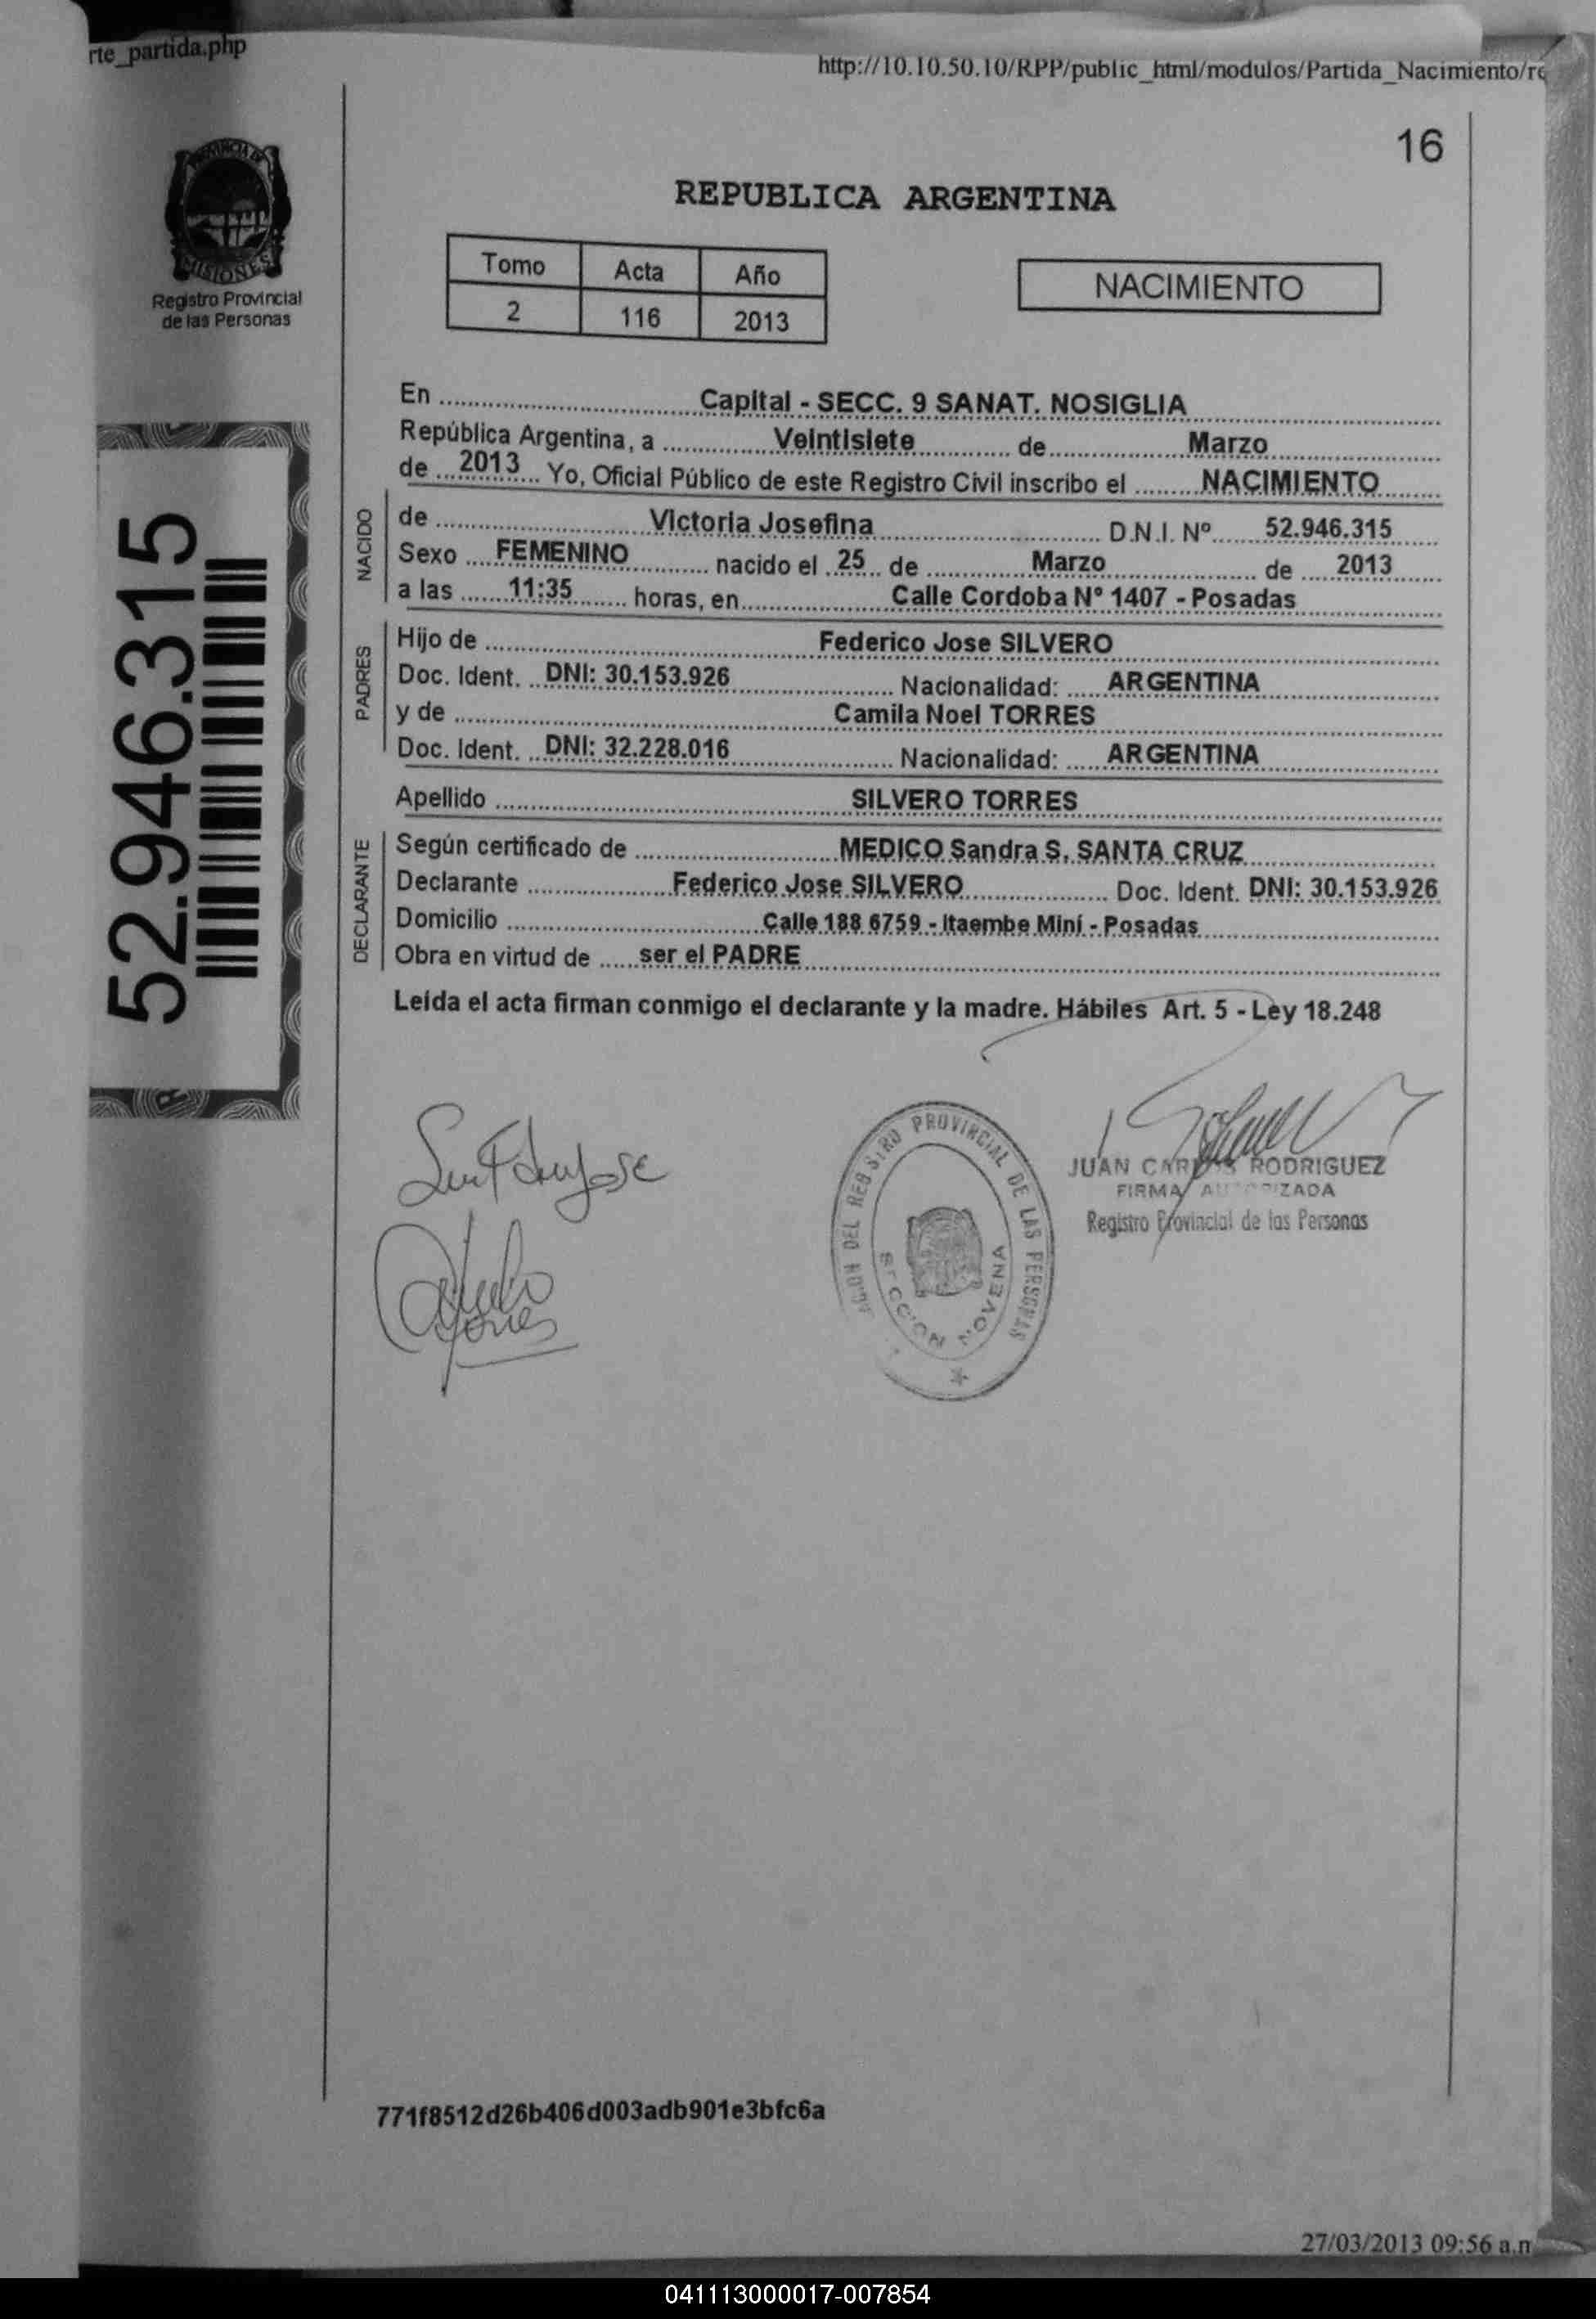 rte_partida.php
http://10.10.50.10/RPP/public_html/modulos/Partida_Nacimiento/re
16
PROVINCIA DE
MISIONES
Registro Provincial
de las Personas
REPUBLICA ARGENTINA
Tomo Acta Año
2 116 2013
NACIMIENTO
52.946.315
En ........ Capital - SECC. 9 SANAT. NOSIGLIA
República Argentina, a ........ Veintisiete ........ de ........ Marzo
de ... 2013 ... Yo, Oficial Público de este Registro Civil inscribo el ........ NACIMIENTO
NACIDO
de ........ Victoria Josefina ........ D.N.I. Nº ...... 52.946.315
Sexo .... FEMENINO ........ nacido el .25.. de ........ Marzo ........ de .... 2013
a las ...... 11:35 ....... horas, en ........ Calle Cordoba Nº 1407 - Posadas
PADRES
Hijo de ........ Federico Jose SILVERO
Doc. Ident. .. DNI: 30.153.926 ........ Nacionalidad: ..... ARGENTINA
y de ........ Camila Noel TORRES
Doc. Ident. .. DNI: 32.228.016 ........ Nacionalidad: ..... ARGENTINA
Apellido ........ SILVERO TORRES
DECLARANTE
Según certificado de ........ MEDICO Sandra S. SANTA CRUZ
Declarante ........ Federico Jose SILVERO ........ Doc. Ident. DNI: 30.153.926
Domicilio ........ Calle 188 6759 - Itaembe Miní - Posadas
Obra en virtud de ..... ser el PADRE
Leída el acta firman conmigo el declarante y la madre. Hábiles Art. 5 - Ley 18.248
DEL REGISTRO PROVINCIAL DE LAS PERSONAS
SECCION NOVENA
JUAN CARLOS RODRIGUEZ
FIRMA AUTORIZADA
Registro Provincial de las Personas
771f8512d26b406d003adb901e3bfc6a
27/03/2013 09:56 a.n
041113000017-007854